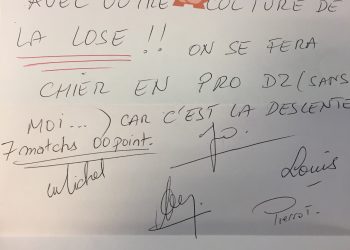 AVEC VOTRE CULTURE DE
LA LOSE !! ON SE FERA
CHIER EN PRO D2 (SANS
MOI...) CAR C'EST LA DESCENTE
7 matchs 00 point.
Michel
Louis
Pierrot.